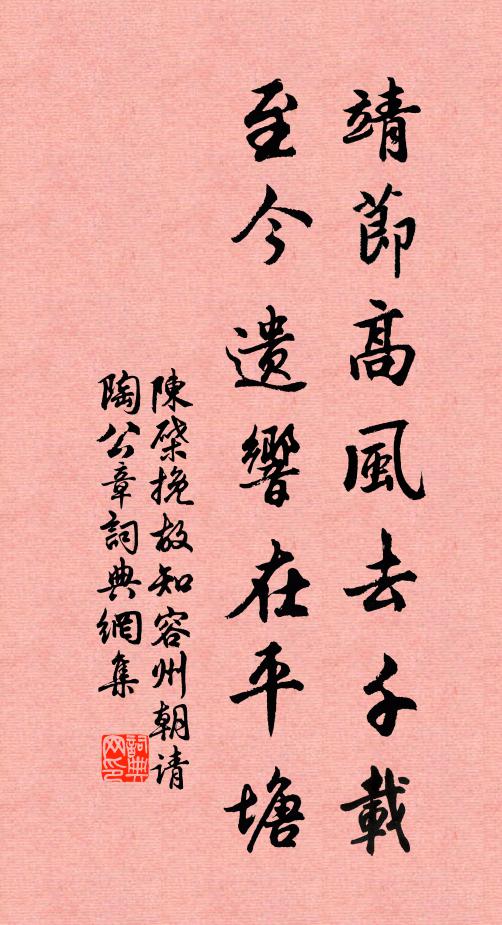 靖節高風去千載
至今遺響在平塘
陳棨挽故知容州朝請
陶公章詞典網集
詞典网印